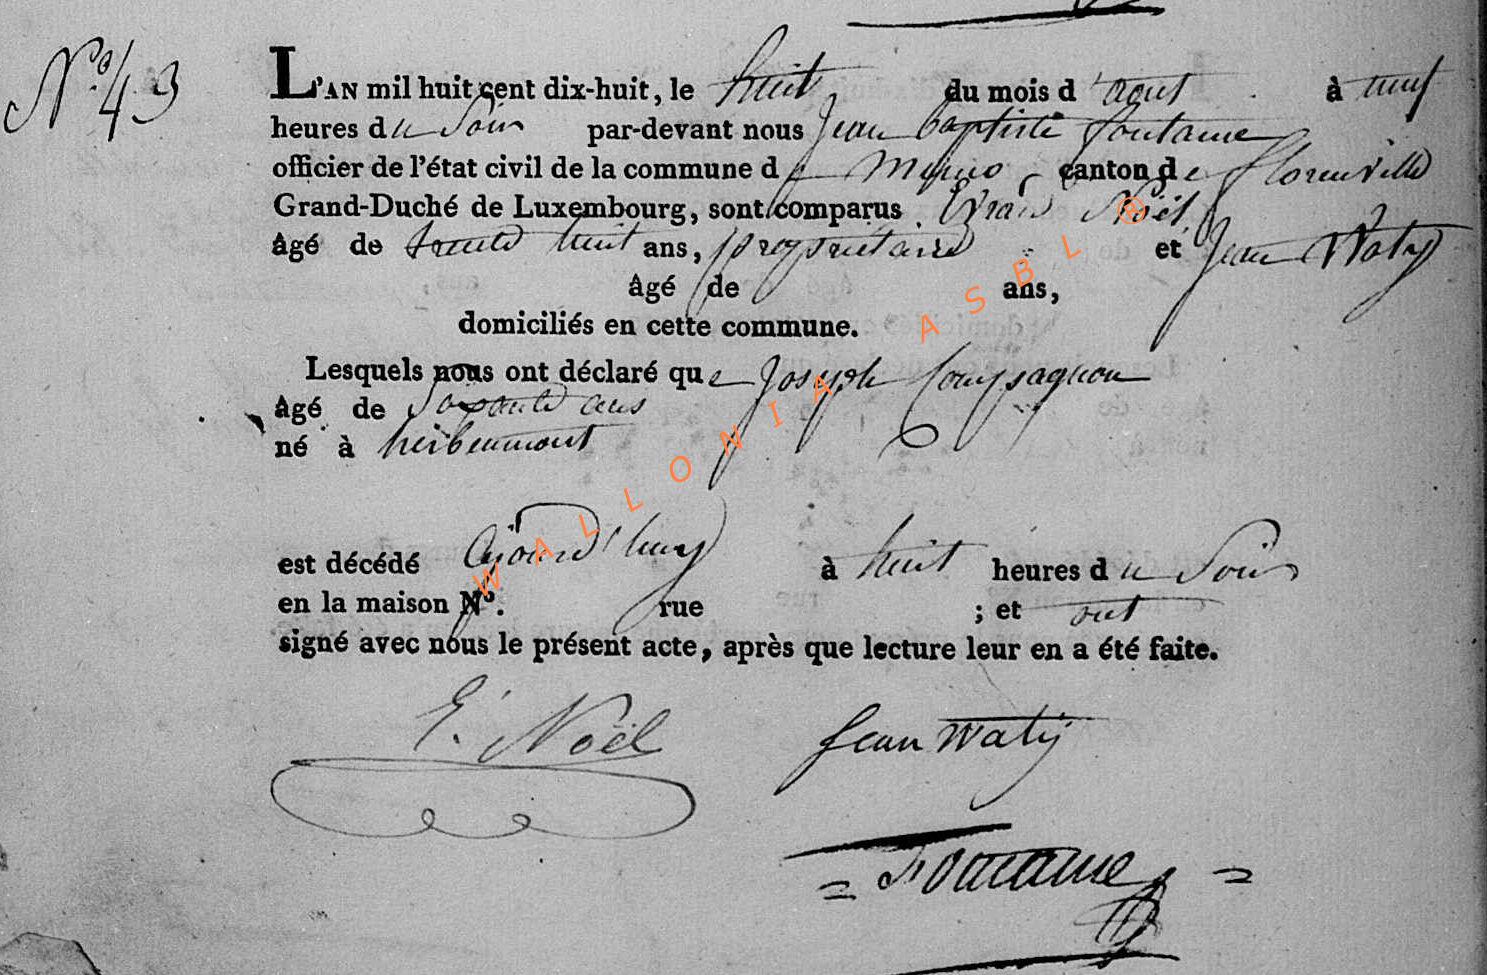 N.° 43
L'AN mil huit cent dix-huit, le huit du mois d'aout à neuf
heures du Soir par-devant nous Jean baptiste fontaine
officier de l'état civil de la commune de Muno canton de florenville
Grand-Duché de Luxembourg, sont comparus Evrard Noël
âgé de trente huit ans, propriétaire et Jean Waty
âgé de ans,
domiciliés en cette commune.
Lesquels nous ont déclaré que Joseph Compagnon
âgé de Soixante ans
né à herbeumont
est décédé à huit heures du Soir
en la maison N°. rue ; et ont
signé avec nous le présent acte, après que lecture leur en a été faite.
E. Noël Jean Waty
= Fontaine =
WALLONIA ASBL ®